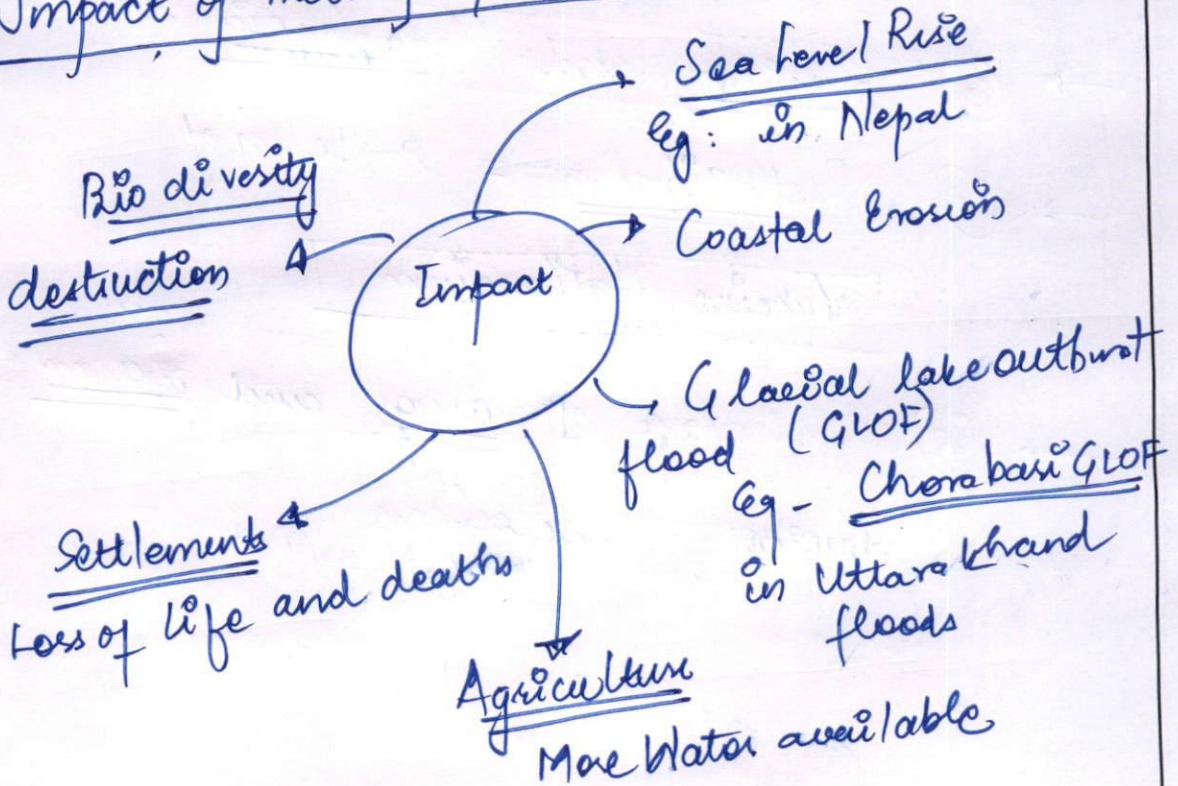 Impact of
Sea Level Rise
Eg: in Nepal
Coastal Erosion
Bio divesity
destruction
Impact
Glacial lake outburst
flood (GLOF)
Eg - Chorabari GLOF
in Uttarakhand
floods
Settlements
Loss of life and deaths
Agriculture
More Water available